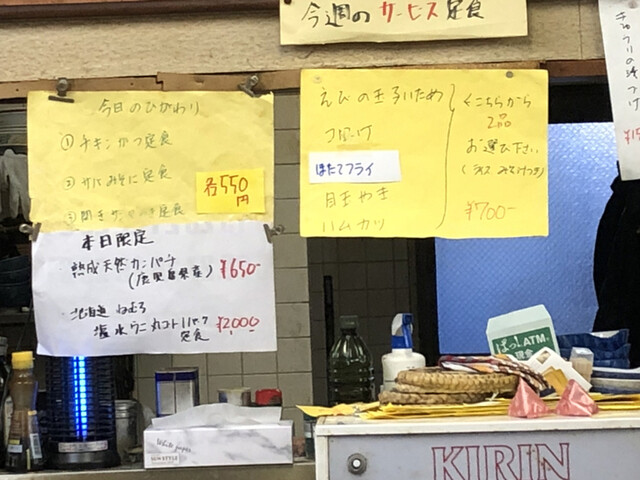 今週のサービス定食
今日のひがわり
① チキンかつ定食
② サバみそに定食
③ 開き 定食
各550円
本日限定
・熟成天然カンパチ
(鹿児島県産)
¥650-
・北海道 ねむろ
塩水ウニ丸ゴト1パック
定食
¥2,000
えびの玉子いため
コロッケ
ほたてフライ
目玉やき
ハムカツ
←こちらから
2品
お選び下さい
(ライス みそ汁つき)
¥700-
きゅうりの漬つけ
ATM
現金
KIRIN